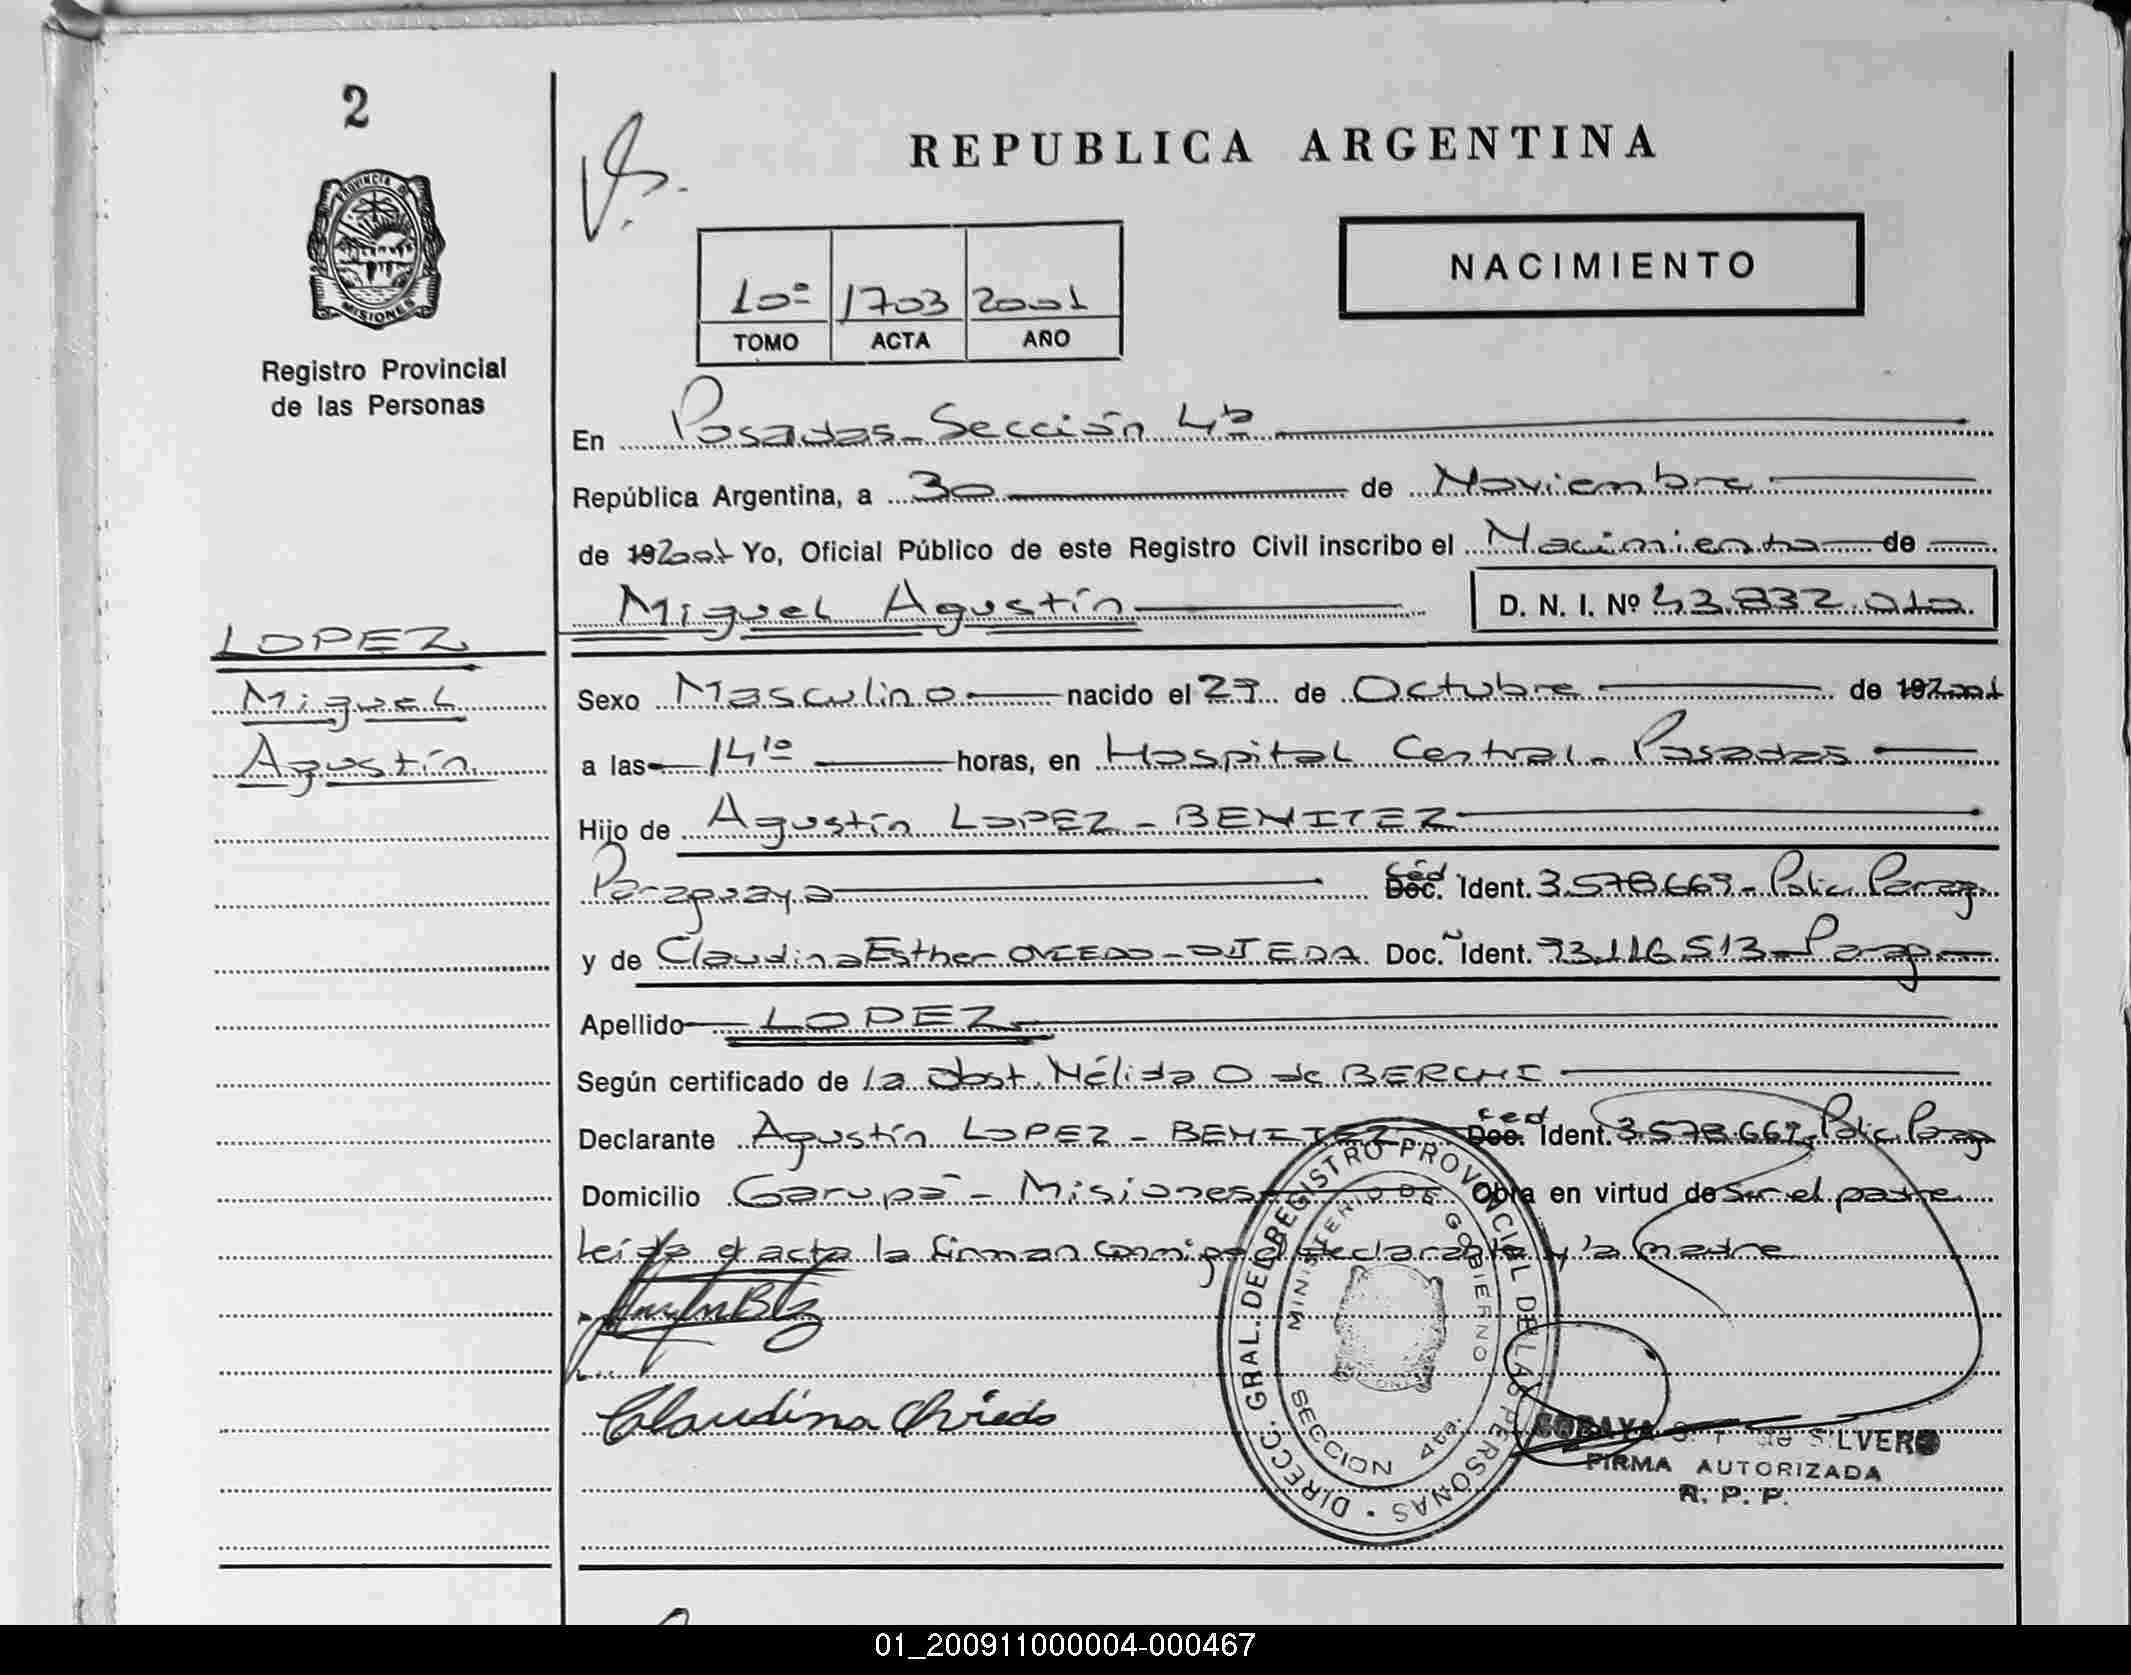 2
REPUBLICA ARGENTINA
PROVINCIA DE
MISIONES
Registro Provincial
de las Personas
NACIMIENTO
10º 1703 2001
TOMO ACTA AÑO
En Posadas - Sección 4ta
República Argentina, a 30 de Noviembre
de 192001 Yo, Oficial Público de este Registro Civil inscribo el Nacimiento de
Miguel Agustín D. N. I. Nº
LOPEZ
Miguel
Agustín
Sexo Masculino nacido el 29 de Octubre de 192001
a las 14 10 horas, en Hospital Central - Posadas
Hijo de Agustín LOPEZ - BENITEZ
Paraguaya Céd. Doc. Ident. 3.578.669 - Polic. Parag.
y de Claudina Esther OVIEDO - OJEDA Doc. Ident. 93.116.513 - Parag.
Apellido LOPEZ
Según certificado de la Obst. Nélida O de BERCHI
Declarante Agustín LOPEZ - BENITEZ Céd Doc. Ident. 3.578.669 Polic. Parag
Domicilio Garupá - Misiones Obra en virtud de Ser el padre
Leída el acta la firman conmigo el declarante y la madre
Claudina Oviedo
DIRECC. GRAL. DEL REGISTRO PROVINCIAL DE LAS PERSONAS
MINISTERIO DE GOBIERNO
SECCION 4ta.
de SILVERO
FIRMA AUTORIZADA
R. P. P.
01_200911000004-000467